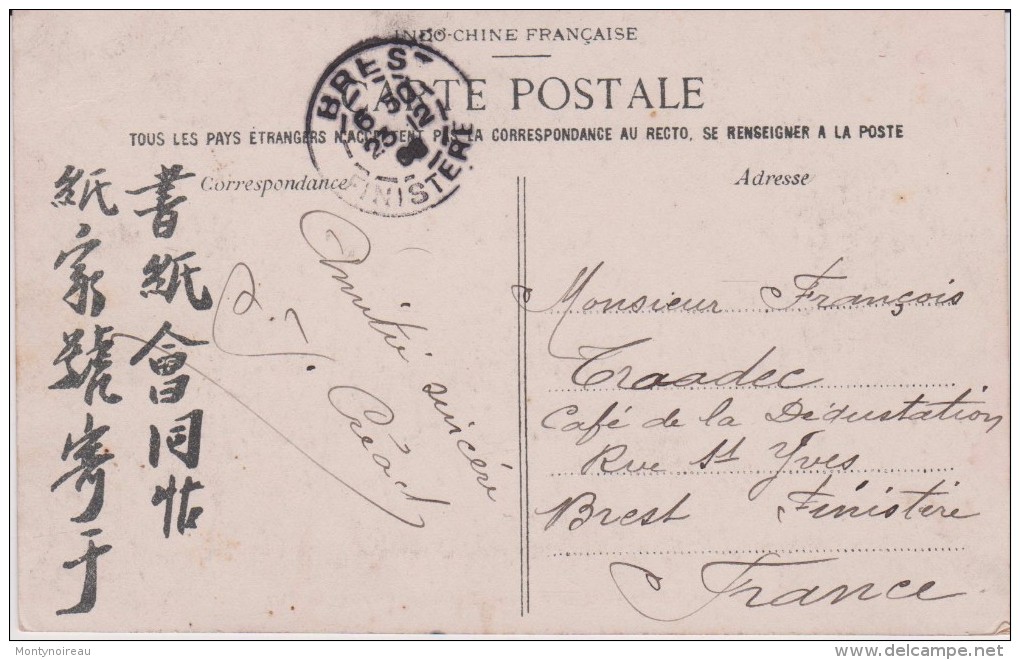 INDO-CHINE FRANÇAISE
CARTE POSTALE
TOUS LES PAYS ÉTRANGERS N'ACCEPTENT PAS LA CORRESPONDANCE AU RECTO, SE RENSEIGNER A LA POSTE
BREST
FINISTERE
Correspondance
Adresse
書紙會同帖
紙家號寄于
Amitié sincère
Créach
Monsieur François
Traadec
Café de la Dégustation
Rue St Yves
Brest Finistère
France
Montynoireau